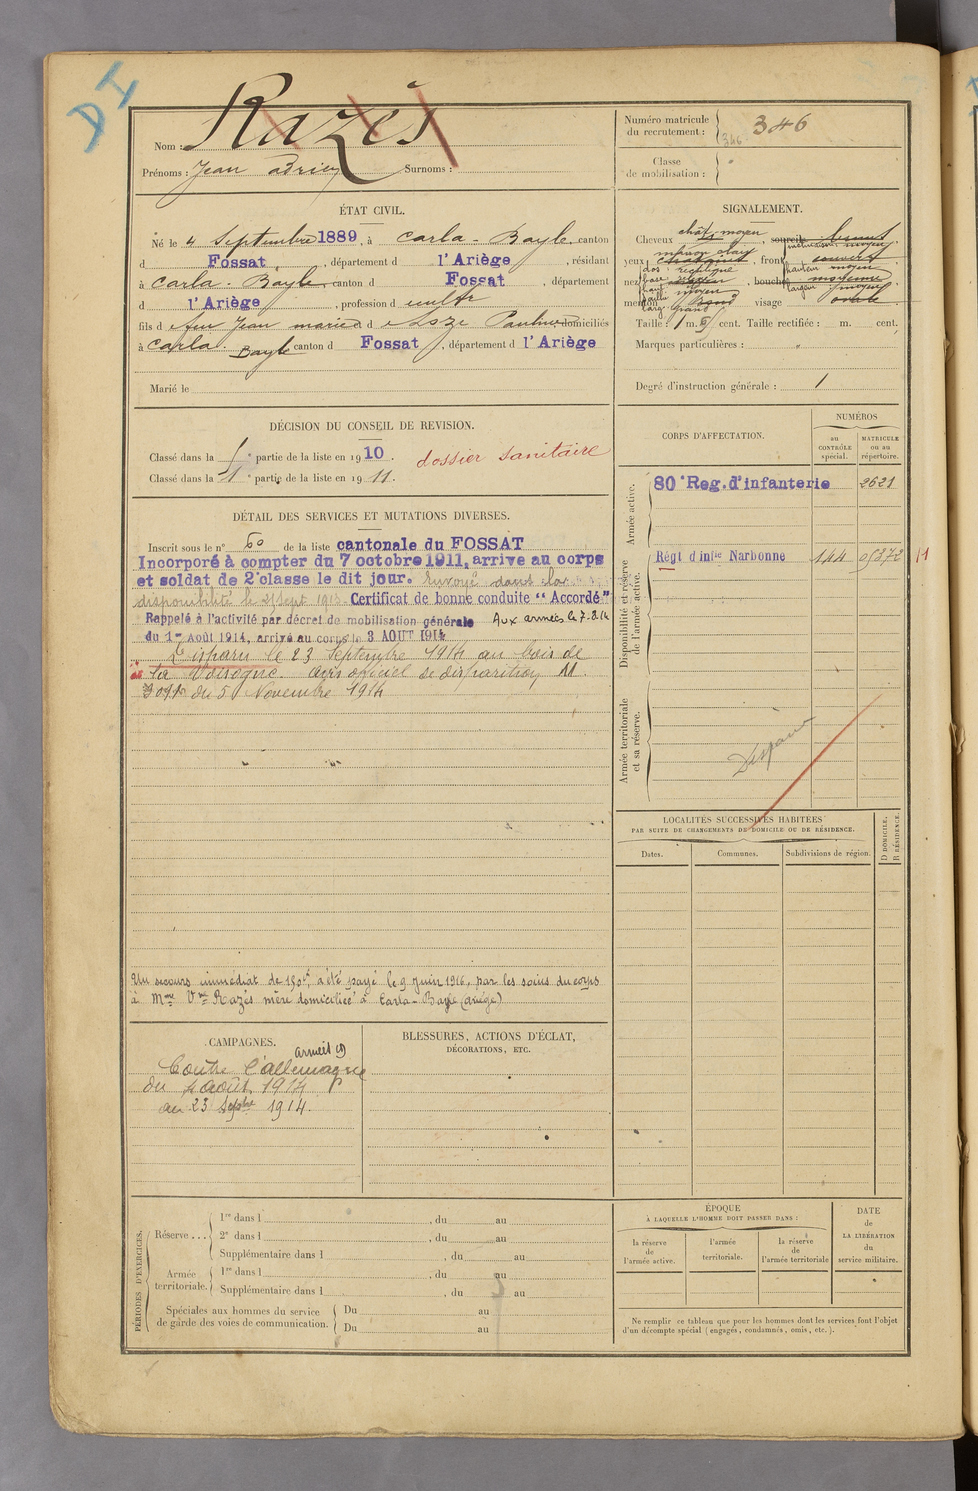 DI
Nom : Razès
Prénoms : Jean Surnoms :
Numéro matricule du recrutement : 346
346
Classe de mobilisation :
ÉTAT CIVIL.
Né le 4 Septembre 1889, à Carla-Bayle, canton
d Fossat, département d l'Ariège, résidant
à Carla-Bayle, canton d Fossat, département
d l'Ariège, profession d cultr
fils d feu Jean marie et d Pauline domiciliés
à Carla-Bayle canton d Fossat, département d l'Ariège
Marié le
SIGNALEMENT.
Cheveux chât. moyen, sourcils bruns
yeux marron clair, front inclinaison moyen
dos rectiligne hauteur moyen
nez base, bouche moyenne
haut moyen largeur moyen
menton rond visage ovale
larg. grand
Taille : 1 m. cent. Taille rectifiée : m. cent.
Marques particulières : "
Degré d'instruction générale : 1
DÉCISION DU CONSEIL DE REVISION.
Classé dans la 1e partie de la liste en 1910.
Classé dans la 1e partie de la liste en 1911.
dossier sanitaire
CORPS D'AFFECTATION.
NUMÉROS
au CONTRÔLE spécial.
MATRICULE ou au répertoire.
Armée active.
80e Reg. d'infanterie 2621
Disponibilité et réserve de l'armée active.
Régt d'infie Narbonne 144 05872 11
Armée territoriale et sa réserve.
Disparu
DÉTAIL DES SERVICES ET MUTATIONS DIVERSES.
Inscrit sous le n° 60 de la liste cantonale du FOSSAT
Incorporé à compter du 7 octobre 1911, arrivé au corps
et soldat de 2e classe le dit jour. Envoyé dans la
disponibilité le 27 sept 1913. Certificat de bonne conduite "Accordé"
Rappelé à l'activité par décret de mobilisation générale Aux armées le 7-8-14
du 1er Août 1914, arrivé au corps le 3 AOUT 1914
Disparu le 23 Septembre 1914 au bois de
la Voisogne. Avis officiel de disparition M.
du 5 Novembre 1914
Un secours immédiat de 150f, a été payé le 9 Juin 1916, par les soins du corps
à Mme Vve Razès mère domiciliée à Carla-Bayle (Ariège)
LOCALITÉS SUCCESSIVES HABITÉES
PAR SUITE DE CHANGEMENTS DE DOMICILE OU DE RÉSIDENCE.
Dates.
Communes.
Subdivisions de région.
D DOMICILE.
R RÉSIDENCE.
CAMPAGNES.
armées
Contre l'allemagne
du 4 août 1914
au 23 Septbre 1914.
BLESSURES, ACTIONS D'ÉCLAT,
DÉCORATIONS, ETC.
PÉRIODES D'EXERCICES.
Réserve ...
1re dans l , du au
2e dans l , du au
Supplémentaire dans l , du au
Armée territoriale.
1re dans l , du au
Supplémentaire dans l , du au
Spéciales aux hommes du service
de garde des voies de communication.
Du au
Du au
ÉPOQUE
À LAQUELLE L'HOMME DOIT PASSER DANS :
la réserve de l'armée active.
l'armée territoriale.
la réserve de l'armée territoriale
DATE
de
LA LIBÉRATION
du
service militaire.
Ne remplir ce tableau que pour les hommes dont les services font l'objet
d'un décompte spécial (engagés, condamnés, omis, etc.).